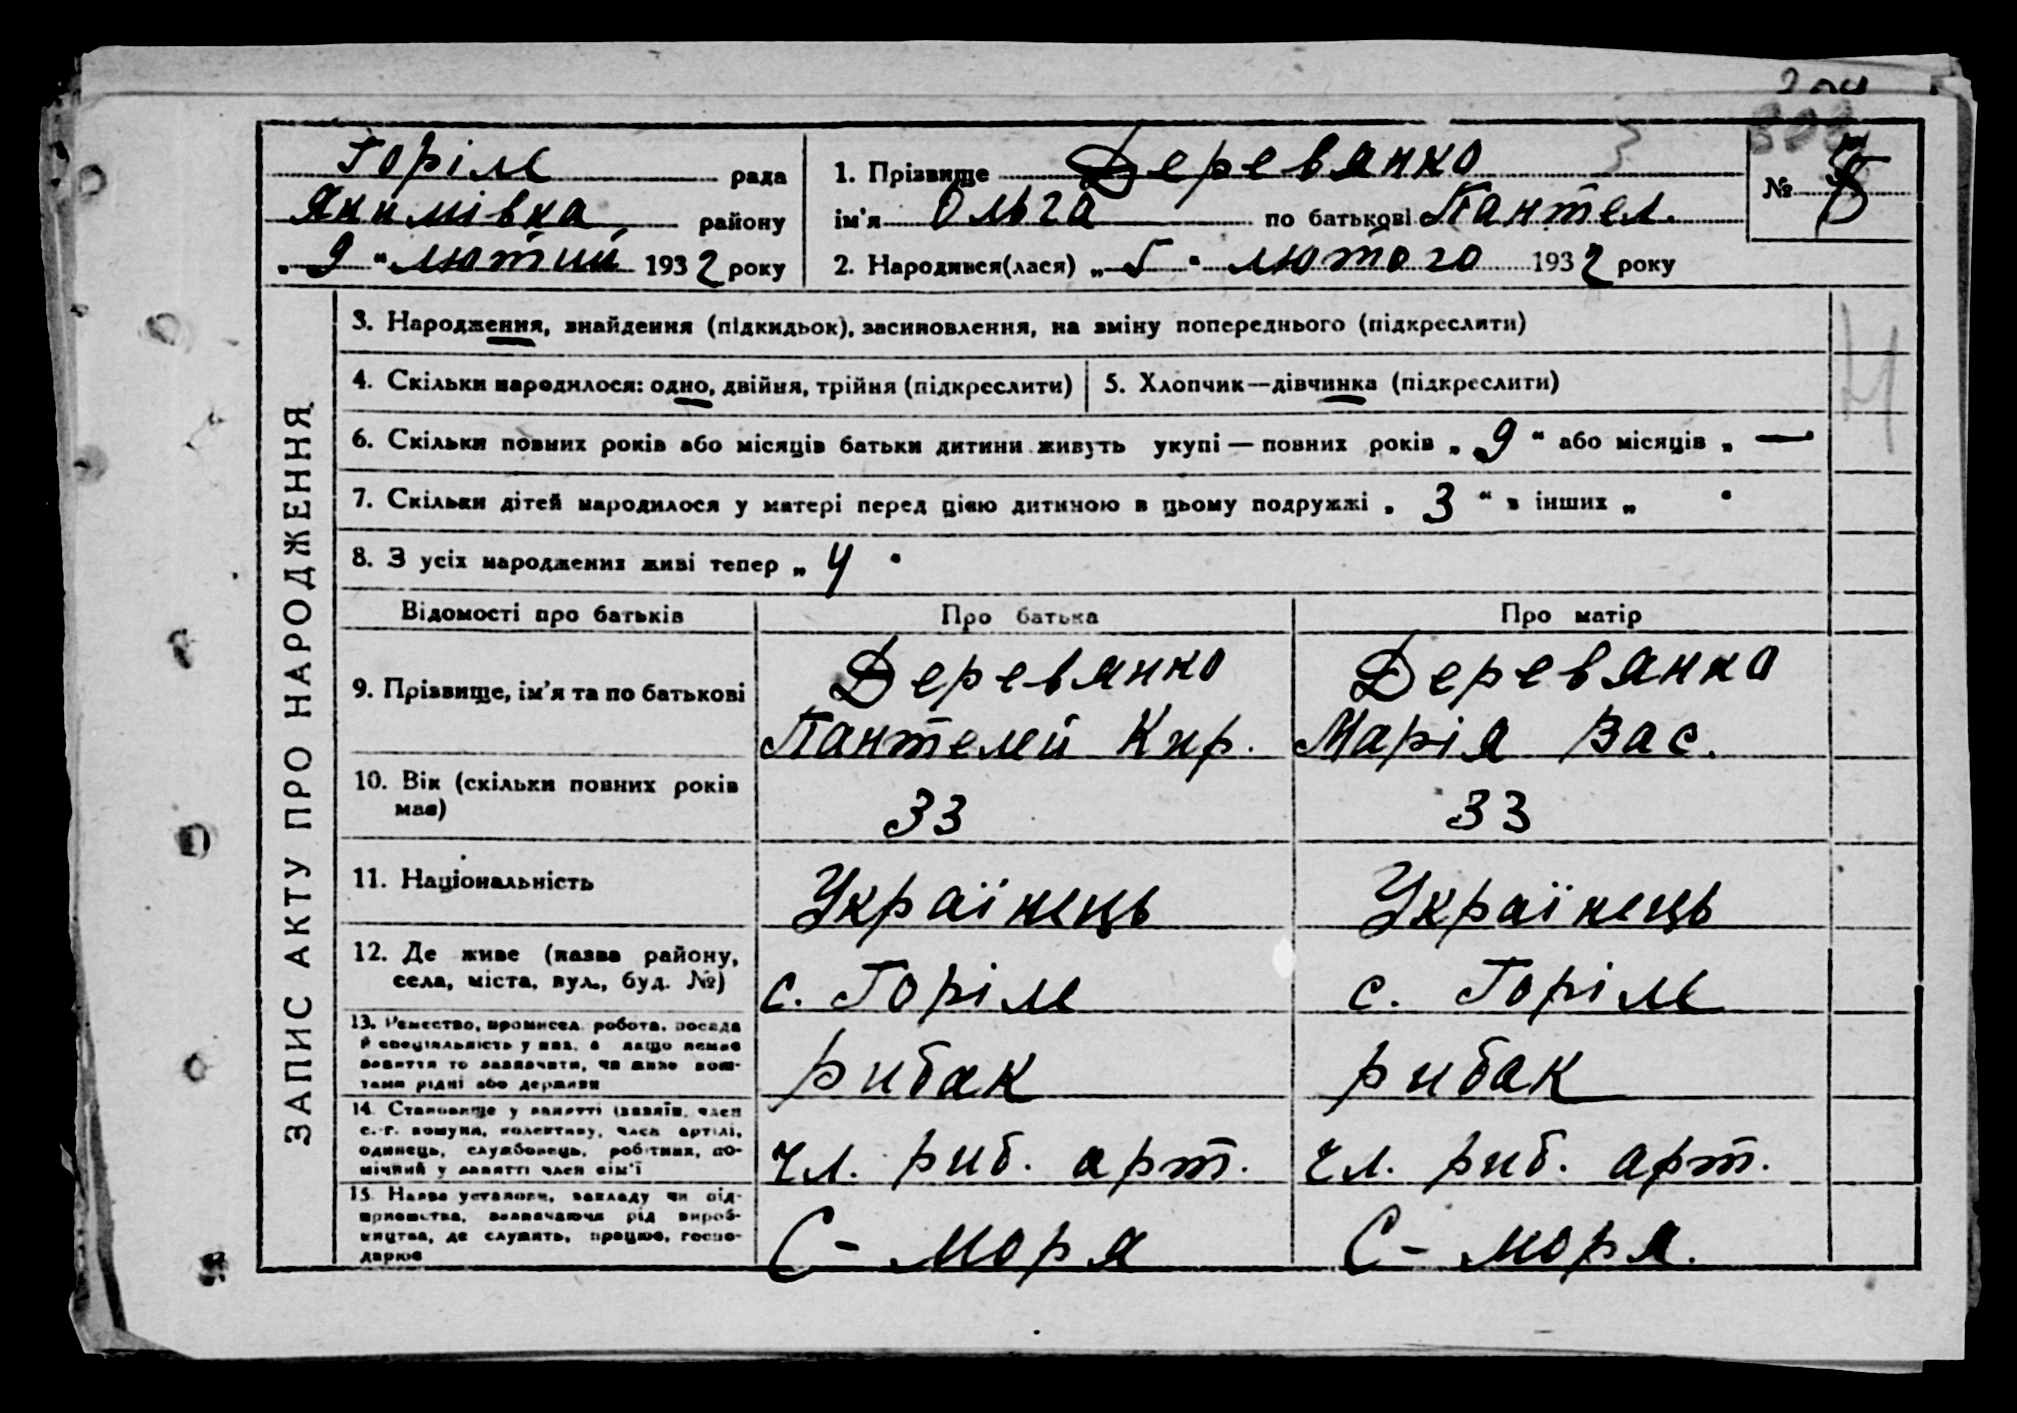 Горіле рада
Якимівка району
„ 9 “ лютий 1932 року
1. Прізвище Деревянко
ім'я Ольга по батькові Пантел.
2. Народився(лася) „ 5 “ лютого 1932 року
№ 5
ЗАПИС АКТУ ПРО НАРОДЖЕННЯ
3. Народження, знайдення (підкидьок), засиновлення, на зміну попереднього (підкреслити)
4. Скільки народилося: одно, двійня, трійня (підкреслити)
5. Хлопчик—дівчинка (підкреслити)
6. Скільки повних років або місяців батьки дитини живуть укупі — повних років „ 9 “ або місяців „ —
7. Скільки дітей народилося у матері перед цією дитиною в цьому подружжі „ 3 “ в інших „ “
8. З усіх народжених живі тепер „ 4 “
Відомості про батьків
Про батька
Про матір
9. Прізвище, ім'я та по батькові
Деревянко
Пантелей Кир.
Деревянко
Марія Вас.
10. Вік (скільки повних років має)
33
33
11. Національність
Українець
Українець
12. Де живе (назва району,
села, міста, вул., буд. №)
с. Горіле
с. Горіле
13. Ремество, промисел, робота, посада
й спеціяльність у них, а якщо немає
заняття то зазначити, чи живе кош-
тами рідні або держави
рибак
рибак
14. Становище у занятті (хазяїн, член
с.-г. комуни, колективу, член артілі,
одинець, службовець, робітник, по-
мічний у занятті член сім'ї
чл. риб. арт.
чл. риб. арт.
15. Назва установи, закладу чи під-
приємства, зазначаючи рід вироб-
ництва, де служить, працює, госпо-
дарює
С - моря
С - моря.